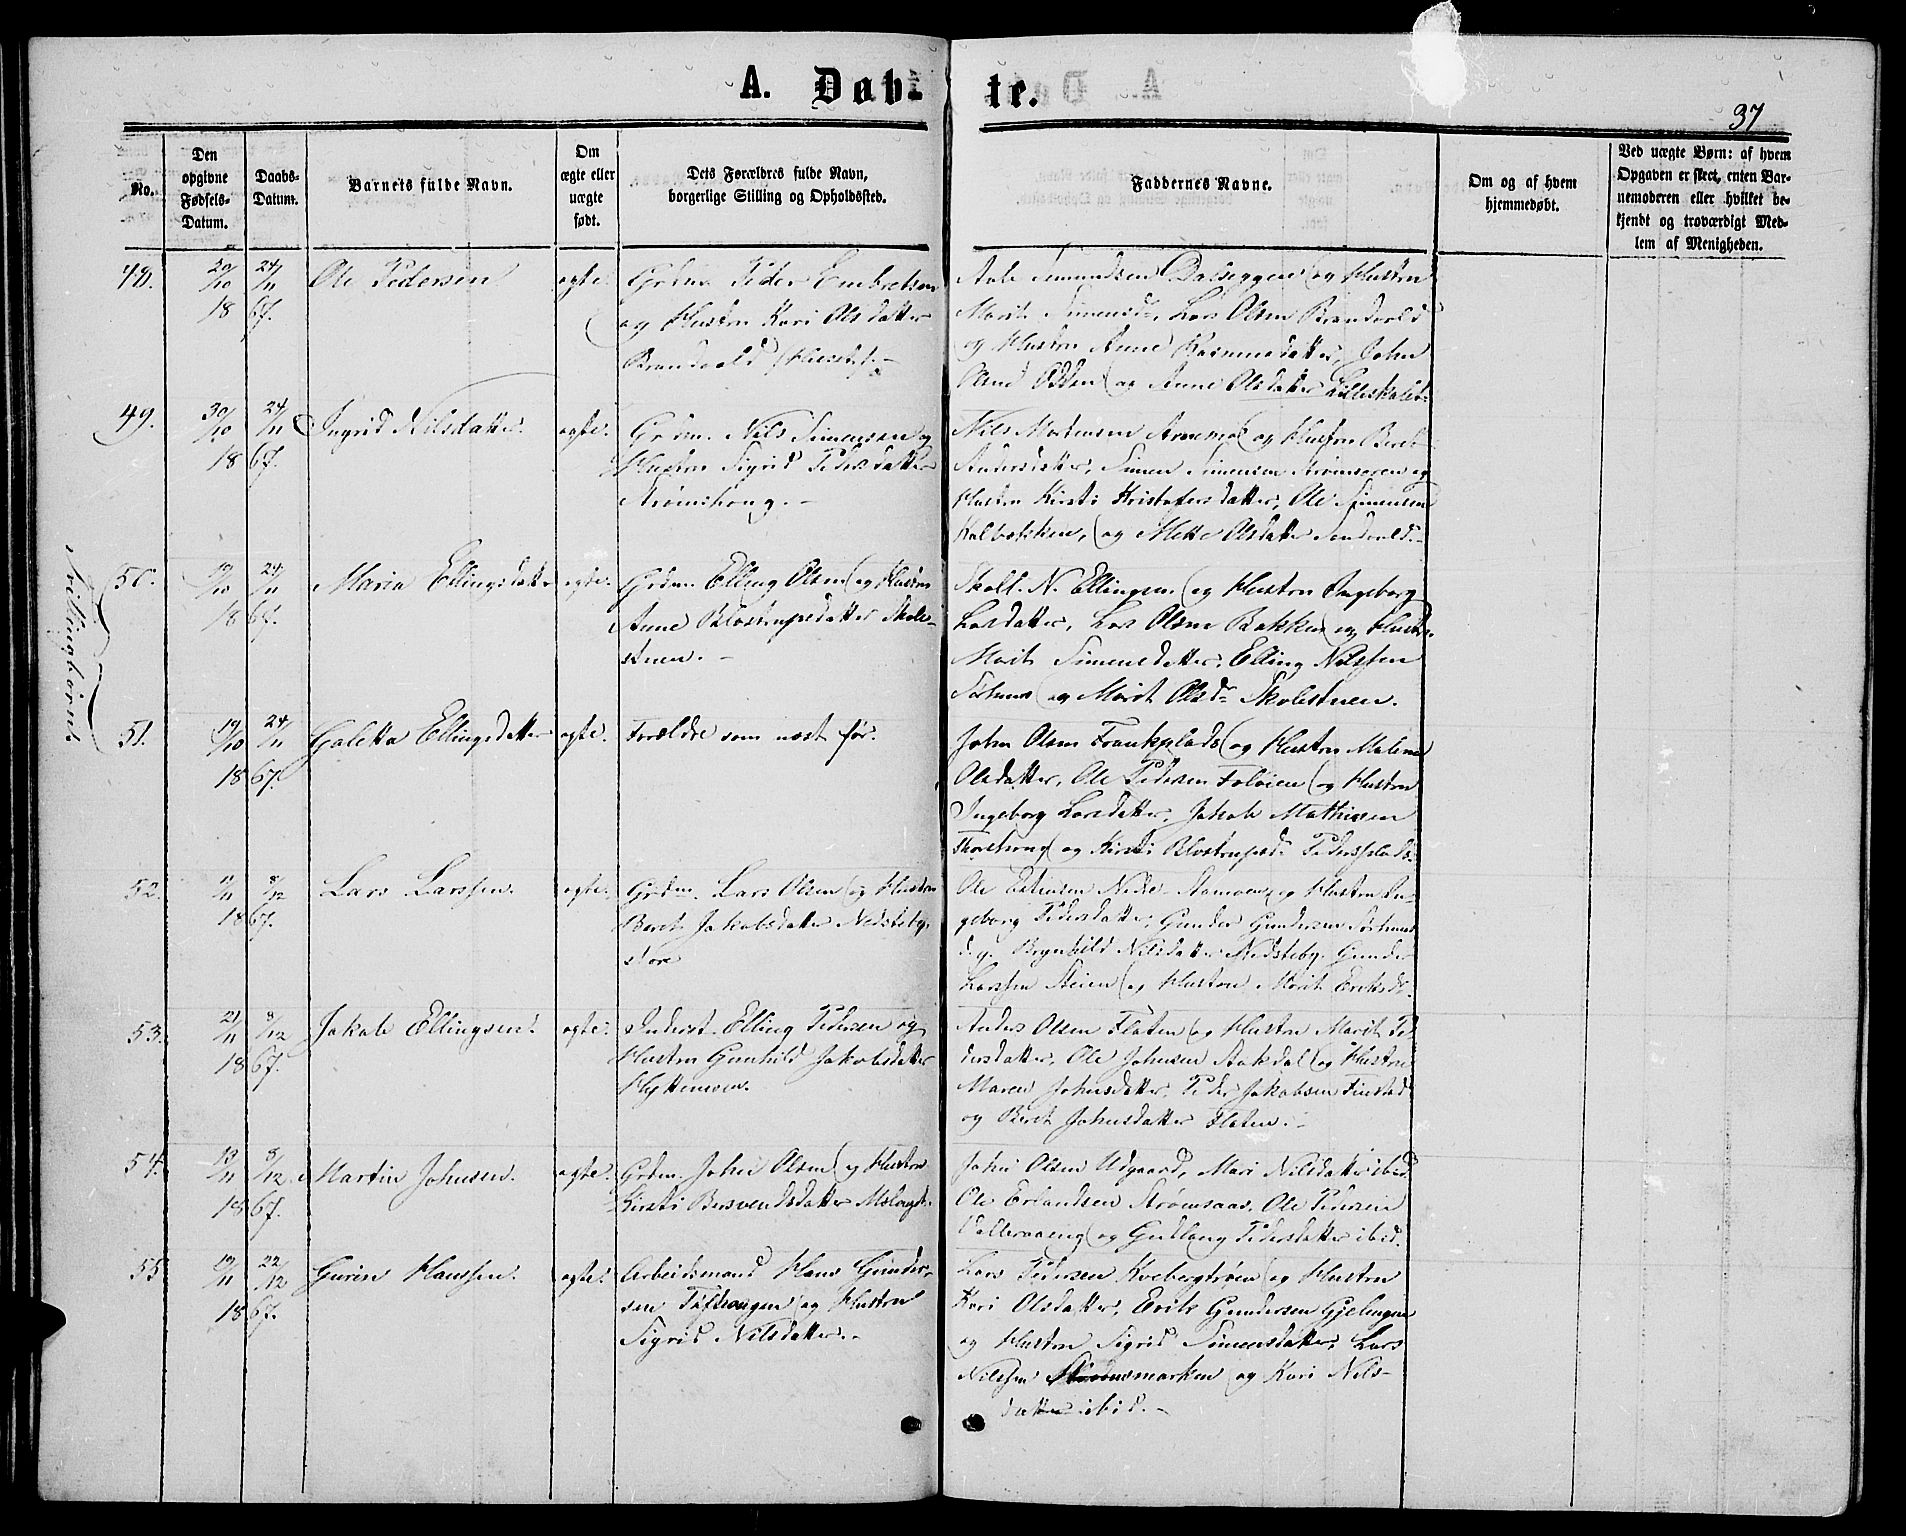 A. Døb- te.
37
No.
Den opgivne Fødsels-Datum.
Daabs-Datum.
Barnets fulde Navn.
Om ægte eller uægte født.
Dets Forældres fulde Navn, borgerlige Stilling og Opholdssted.
Faddernes Navne.
Om og af hvem hjemmedøbt.
Ved uægte Børn: af hvem Opgaven er skeet, enten Barnemoderen eller hvilket bekjendt og troværdigt Medlem af Menigheden.
48. 20/10 1867. 24/11 Ole Pedersen ægte.
Grdm. Peder Embretsen
og Hustru Kari Olsdatter
Brandvold
Simensen Dalseggen og Hustru
Marit Simensd., Lars Olsen Brandvold
og Hustru Anne Rasmusdatter, John
Olsen Odden og Anne Olsdatter
49. 30/10 1867. 24/11 Ingrid Nilsdatter. ægte.
Grdm. Nils Simensen og
Hustru Sigrid Pedersdatter
Strømshoug.
Nils Mortensen Arnemo og Hustru Beret
Andersdatter, Simen Simensen Strømsøren og
Hustru Kirsti Kristofersdatter, Ole Simensen
Kalbækken, og Mette Olsdatter
Tvillingbørn
50. 19/10 1867. 24/11 Maria Ellingsdatter ægte.
Grdm. Elling Olsen og Hustru
Anne Blostrupsdatter Skole-
stuen.
Skoll. N. Ellingsen og Hustru Ingeborg
Larsdatter, Lars Olsen Bakken og Hustru
Marit Simensdatter, Elling Nilssen
Sørhuus og Marit Olsd. Skolestuen.
51. 19/10 1867. 24/11 Galetta Ellingsdatter ægte.
Forældre som næst før.
John Olsen Frankplads og Hustru Malene
Olsdatter, Ole Pedersen Foløien og Hustru
Ingeborg Larsdatter, Jakob Mathisen
og Kirsti Blostrupsd. Pedersplads.
52. 11/11 1867. 8/12 Lars Larssen. ægte.
Grdm. Lars Olsen og Hustru
Beret Jakobsdatter Nedsteby,
store
Ole Estensen Nedre og Hustru In-
geborg Pedersdatter, Gunder Gundersen Sørhuus
d. y. Brynhild Nilsdatter Nedsteby, Gunder
Larssen Steien og Hustru Marit Eriksd.
53. 21/11 1867. 8/12 Jakob Ellingsen. ægte.
Inderst Elling Pedersen og
Hustru Gunhild Jakobsdatter
Hyttemoen.
Anders Olsen Floten og Hustru Marit Pe-
dersdatter, Ole Johnsen Aakdal og Hustru
Maren Johnsdatter, Peder Jakobsen Finstad
og Beret Johnsdatter Floten.
54. 13/11 1867. 8/12 Martin Johnsen. ægte.
Grdm. John Olsen og Hustru
Kirsti Bersvendsdatter
John Olsen Udgaard, Mari Nilsdatter ibid.
Ole Erlandsen Strømsaas, Ole Pedersen
og Gudlaug Pedersdatter ibid.
55. 19/11 1867. 22/12 Gurin Hanssen. ægte.
Arbeidsmand Hans Gunder-
sen Tufthaugen og Hustru
Sigrid Nilsdatter.
Lars Pedersen Kvebergtrøen og Hustru
Kari Olsdatter, Erik Gundersen Gjelingen
og Hustru Sigrid Simensdatter, Lars
Nilssen og Kari Nils-
datter ibid.